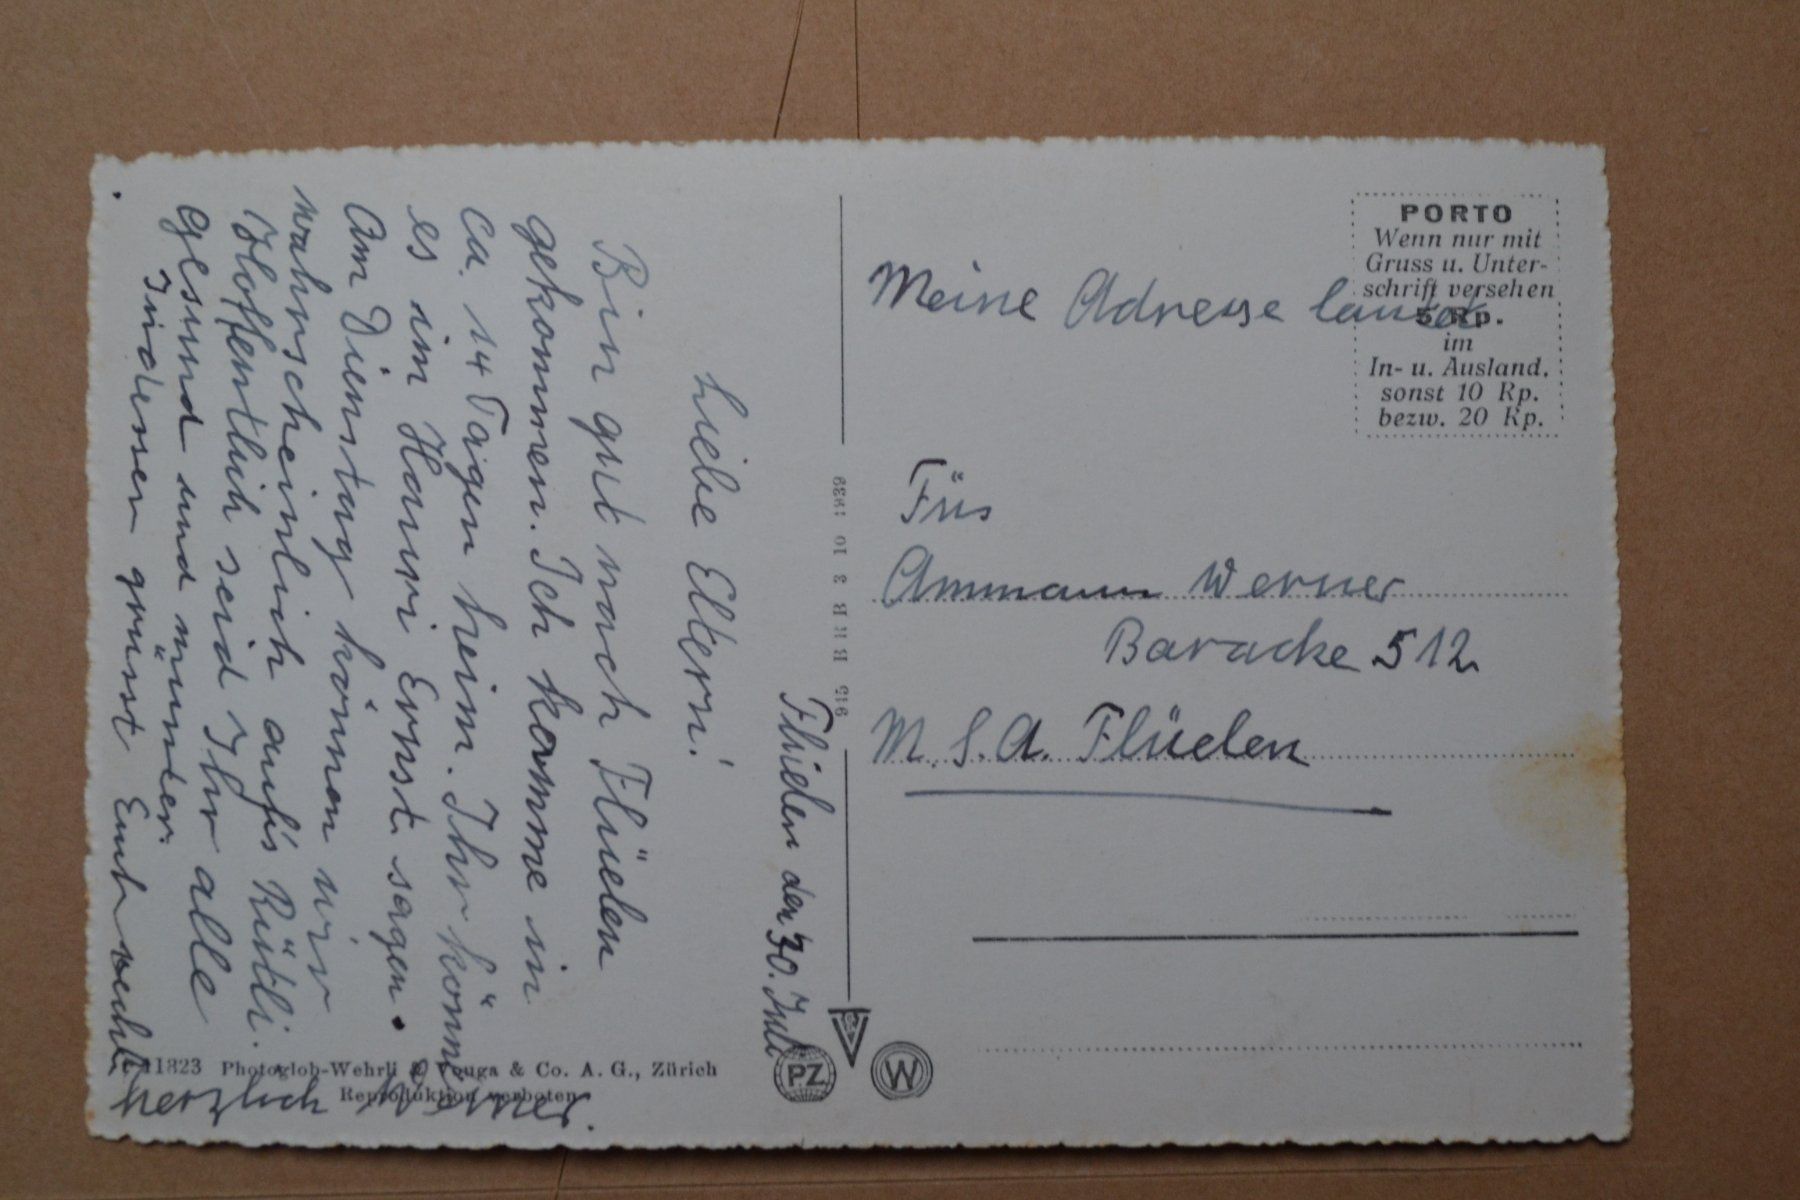 Flüelen den 30. Juli
Liebe Eltern!
Bin gut nach Flüelen
gekommen. Ich komme in
ca. 14 Tagen heim. Ihr könnt
es im Hauri Ernst sagen.
Am Dienstag können wir
wahrscheinlich auf's Rütli.
Hoffentlich seid Ihr alle
gesund und münter.
Indessen grüsst Euch recht
herzlich Werner.
11323 Photoglob-Wehrli & Vouga & Co. A. G., Zürich
Reproduktion verboten
PZ
W
Meine Adresse lautet
PORTO
Wenn nur mit
Gruss u. Unter-
schrift versehen
5 Rp.
im
In- u. Ausland,
sonst 10 Rp.
bezw. 20 Rp.
Füs
Ammann Werner
Baracke 512
M.S.A. Flüelen